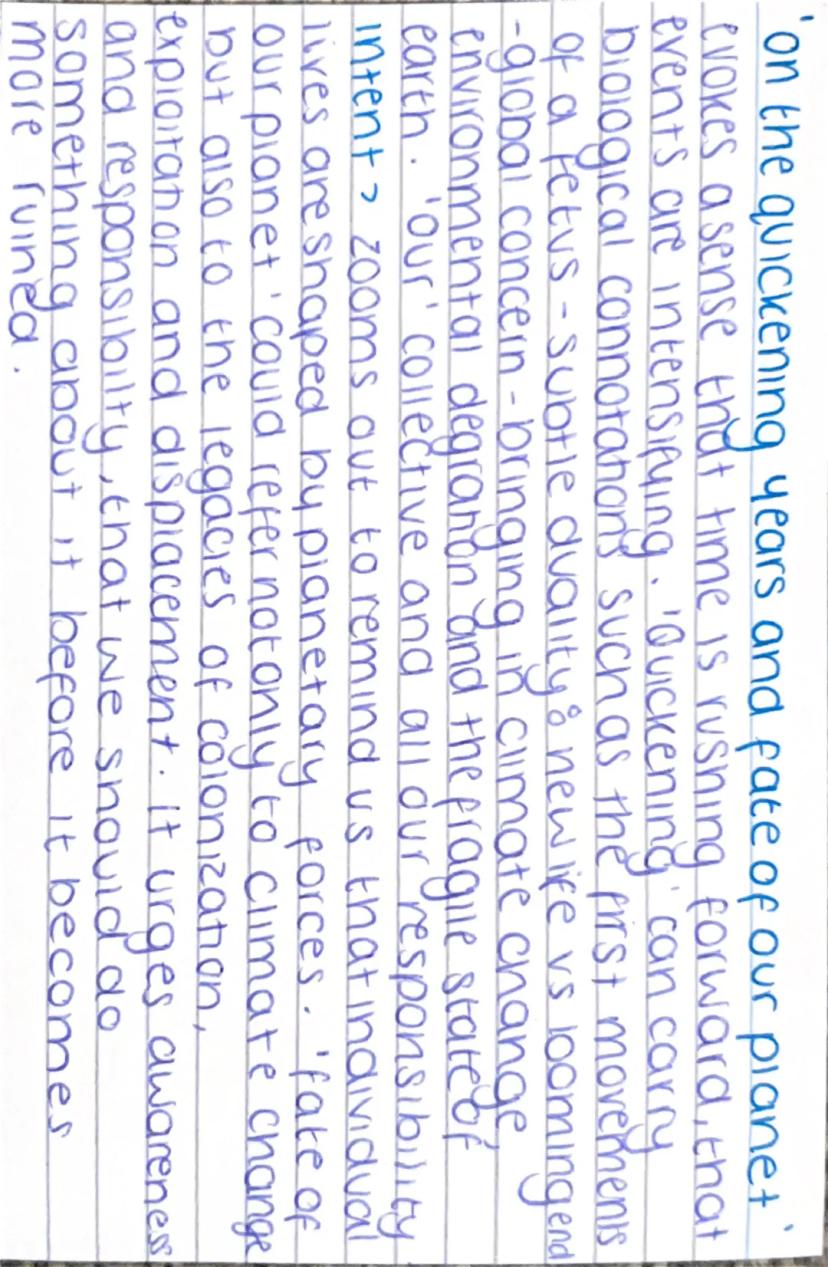 'on the quickening years and fate of our planet'
evokes a sense that time is rushing forward, that
events are intensifying. 'Quickening' can carry
biological connotations such as the first movements
of a fetus - subtle duality: new life vs looming end
-global concern - bringing in climate change,
environmental degration and the fragile state of
earth. 'our' collective and all our responsibility
intent > zooms out to remind us that individual
lives are shaped by planetary forces. 'fate of
our planet' could refer not only to climate change
but also to the legacies of colonization,
exploitation and displacement. it urges awareness
and responsibilty, that we should do
something about it before it becomes
more ruined.